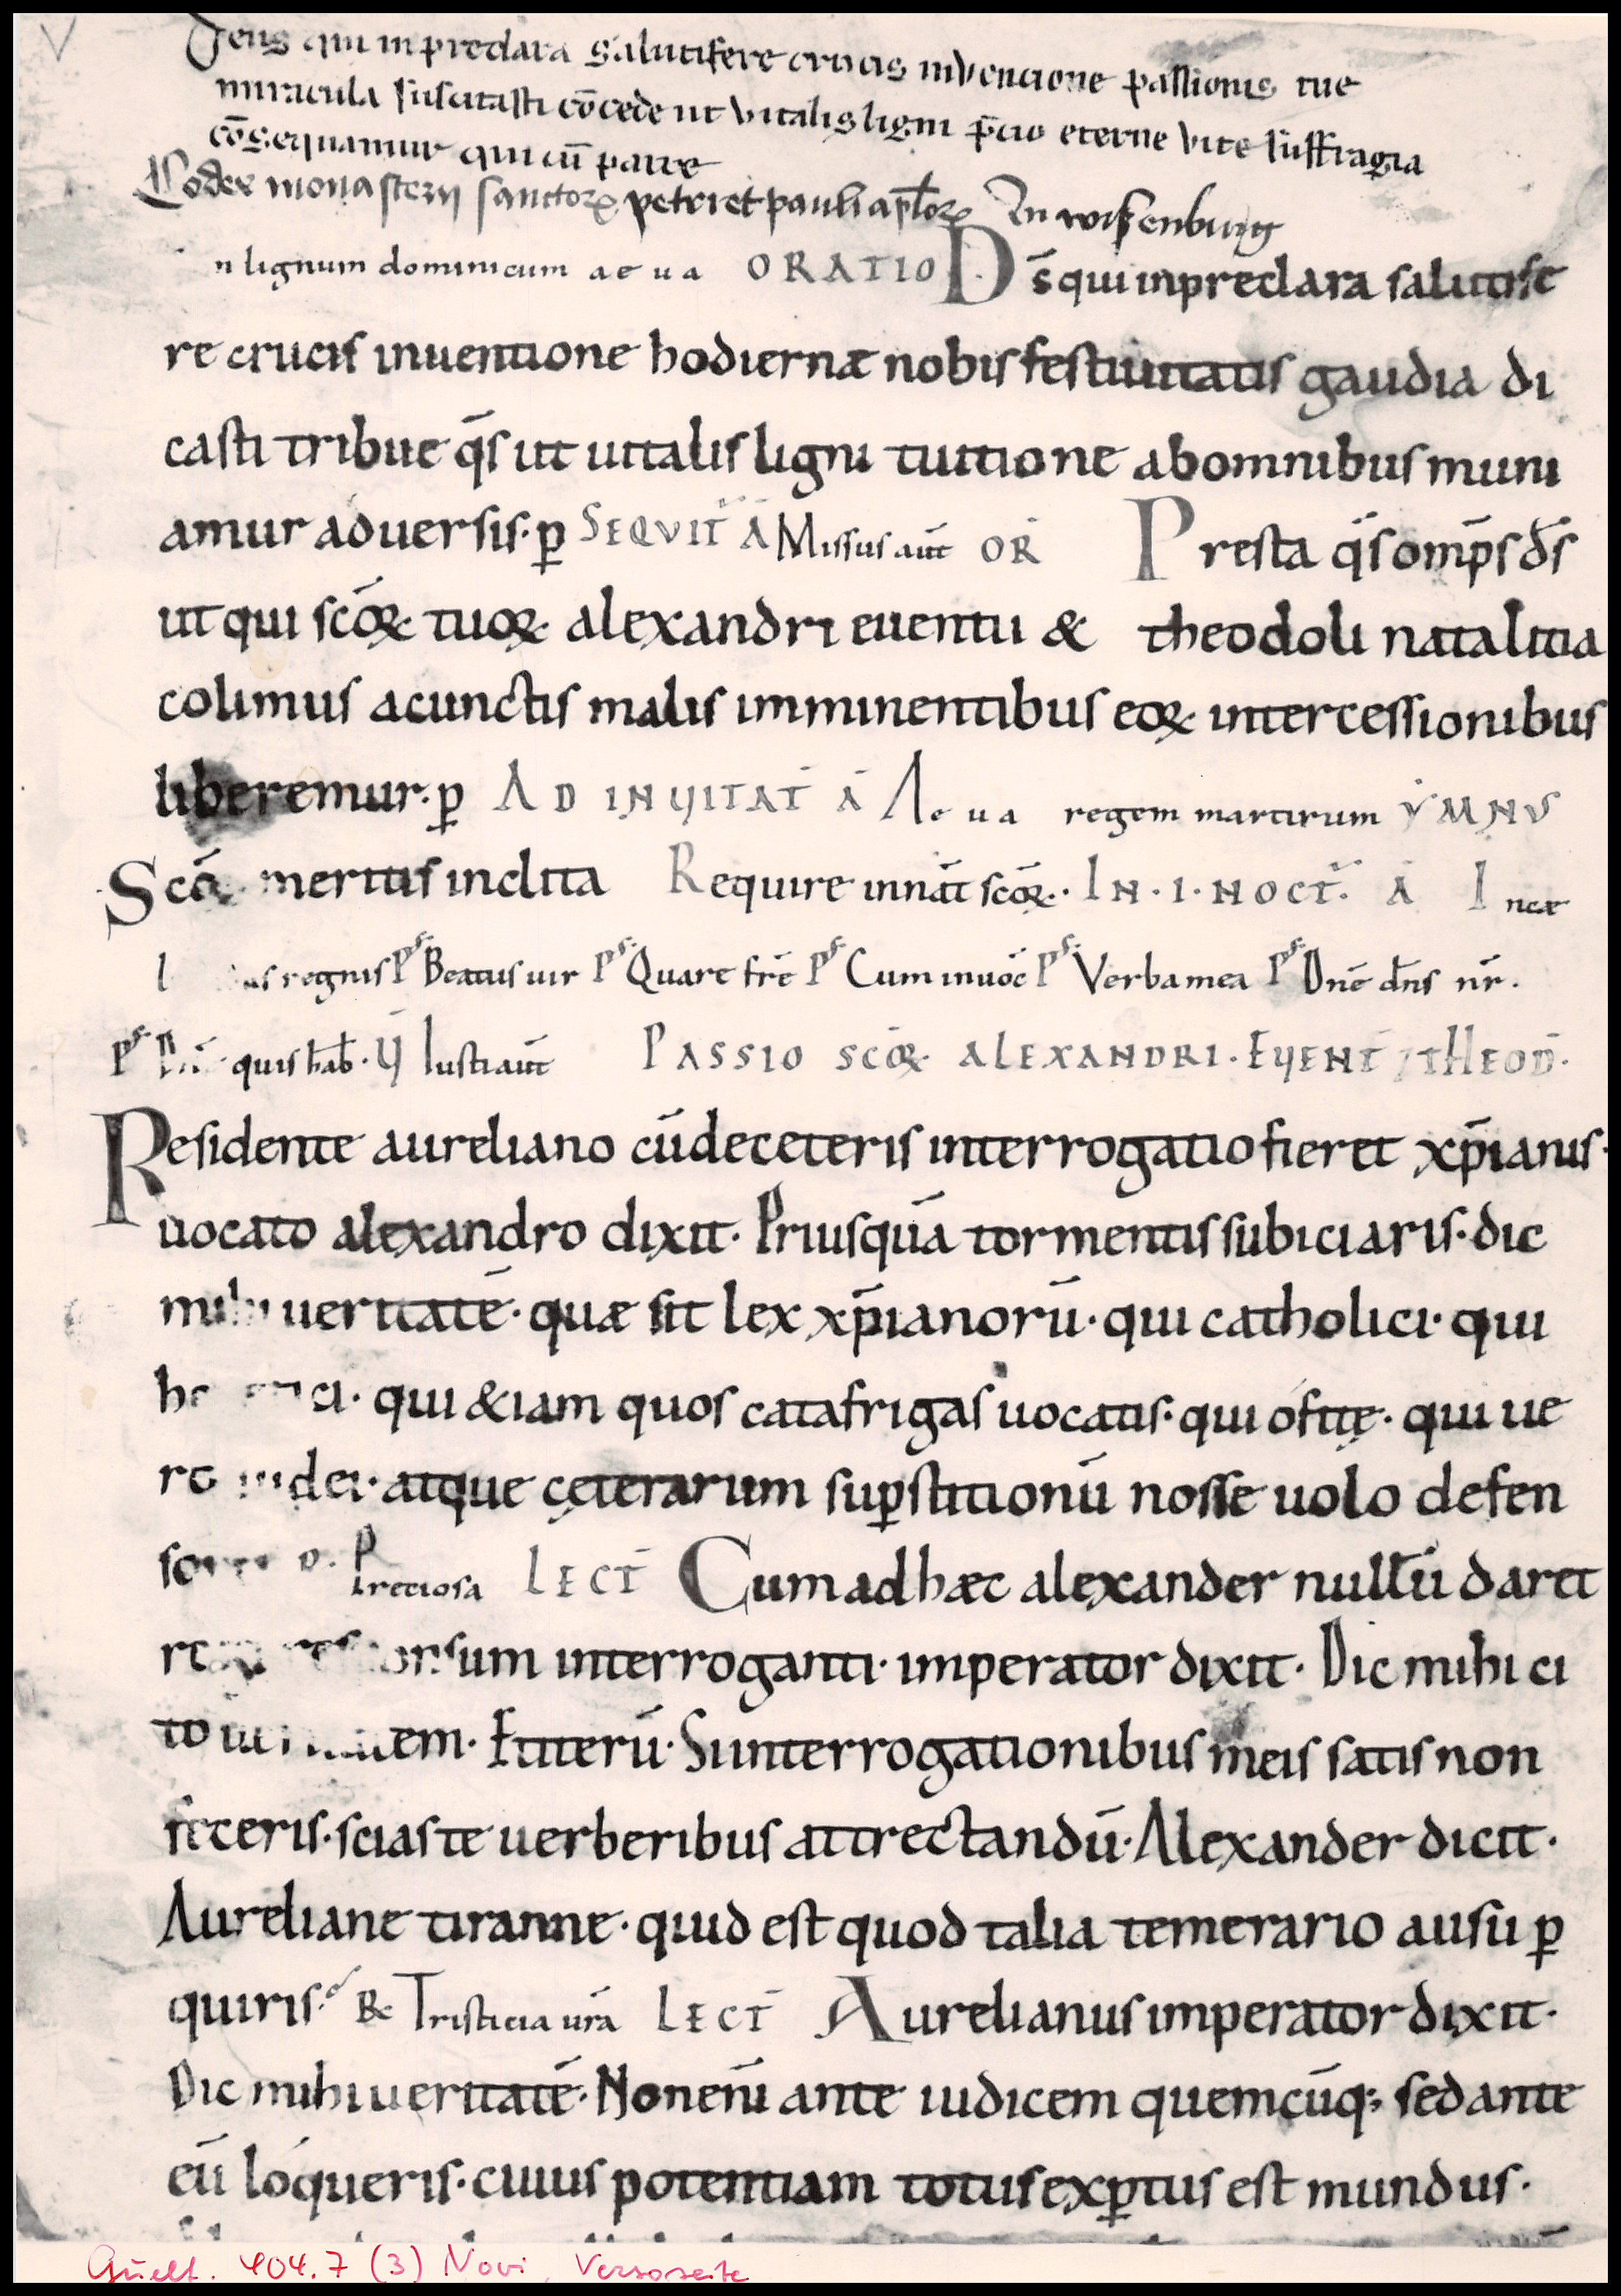 Deus qui in preclara salutifere crucis invencione passionis tue
miracula suscitasti cōcede ut vitalis ligni p̄cio eterne vite suffragia
cōsequamur qui cū patre
Codex monasterij sanctorꝝ petri et pauli apl̄orꝝ In wissenburg
n lignum dominicum aeua ORATIO Ds̄ qui in preclara salutife
re crucis inuentione hodiernæ nobis festiuitatis gaudia di
casti tribue q̄s ut uitalis ligni tuitione ab omnibus muni
amur aduersis. ꝑ SEQVIT̄ Ā Missus aut̄ OR̄ Presta q̄s omp̄s ds̄
ut qui scōꝝ tuoꝝ alexandri euentii & theodoli natalitia
colimus a cunctis malis imminentibus eoꝝ intercessionibus
liberemur. ꝑ AD INVITAT̄ Ā Aeua regem martirum YMNVS
Scōꝝ meritis inclita Require in nat̄ scōꝝ. IN. I. NOCT̄. Ā In cæ
l regnis Ps̄ Beatus uir Ps̄ Quare fr̄e Ps̄ Cum inuoc̄ Ps̄ Verba mea Ps̄ Dn̄e dn̄s nr̄.
Ps̄ Dn̄e quis hab̄. V̄ Iusti aut̄ PASSIO SCŌꝝ ALEXANDRI. EVENT̄ ⁊ THEOD̄.
Residente aureliano cū de ceteris interrogatio fieret xp̄ianis.
uocato alexandro dixit. Priusquā tormentis subiciaris. dic
mihi ueritatē. quæ sit lex xp̄ianorū. qui catholici. qui
he ci. qui &iam quos catafrigas uocatis. qui ofitę. qui ue
ro iudei. atque cęterarum suꝑstitionū nosse uolo defen
so Preciosa LECT̄ Cum ad hæc alexander nullū daret
re responsum interroganti. imperator dixit. Dic mihi ci
to ueritatem. Et iterū. Si interrogationibus meis satis non
feceris. scias te uerberibus attrectandū. Alexander dicit.
Aureliane tiranne. quid est quod talia temerario ausu ꝑ
quiris. R̄ Tristicia ur̄a LECT̄ Aurelianus imperator dixit.
Dic mihi ueritatē. Non enī ante iudicem quemcūq; sed ante
eū loqueris. cuius potentiam totus exꝑtus est mundus.
Guelf. 404.7 (3) Novi, Versoseite